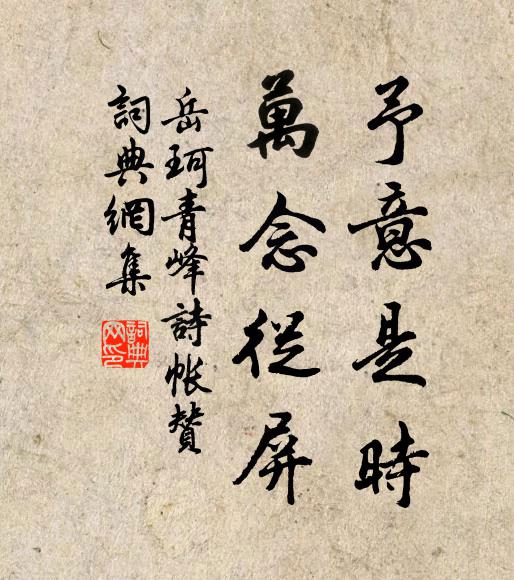 予意是時
萬念從屏
岳珂青峰詩帳贊
詞典網集
詞典網印